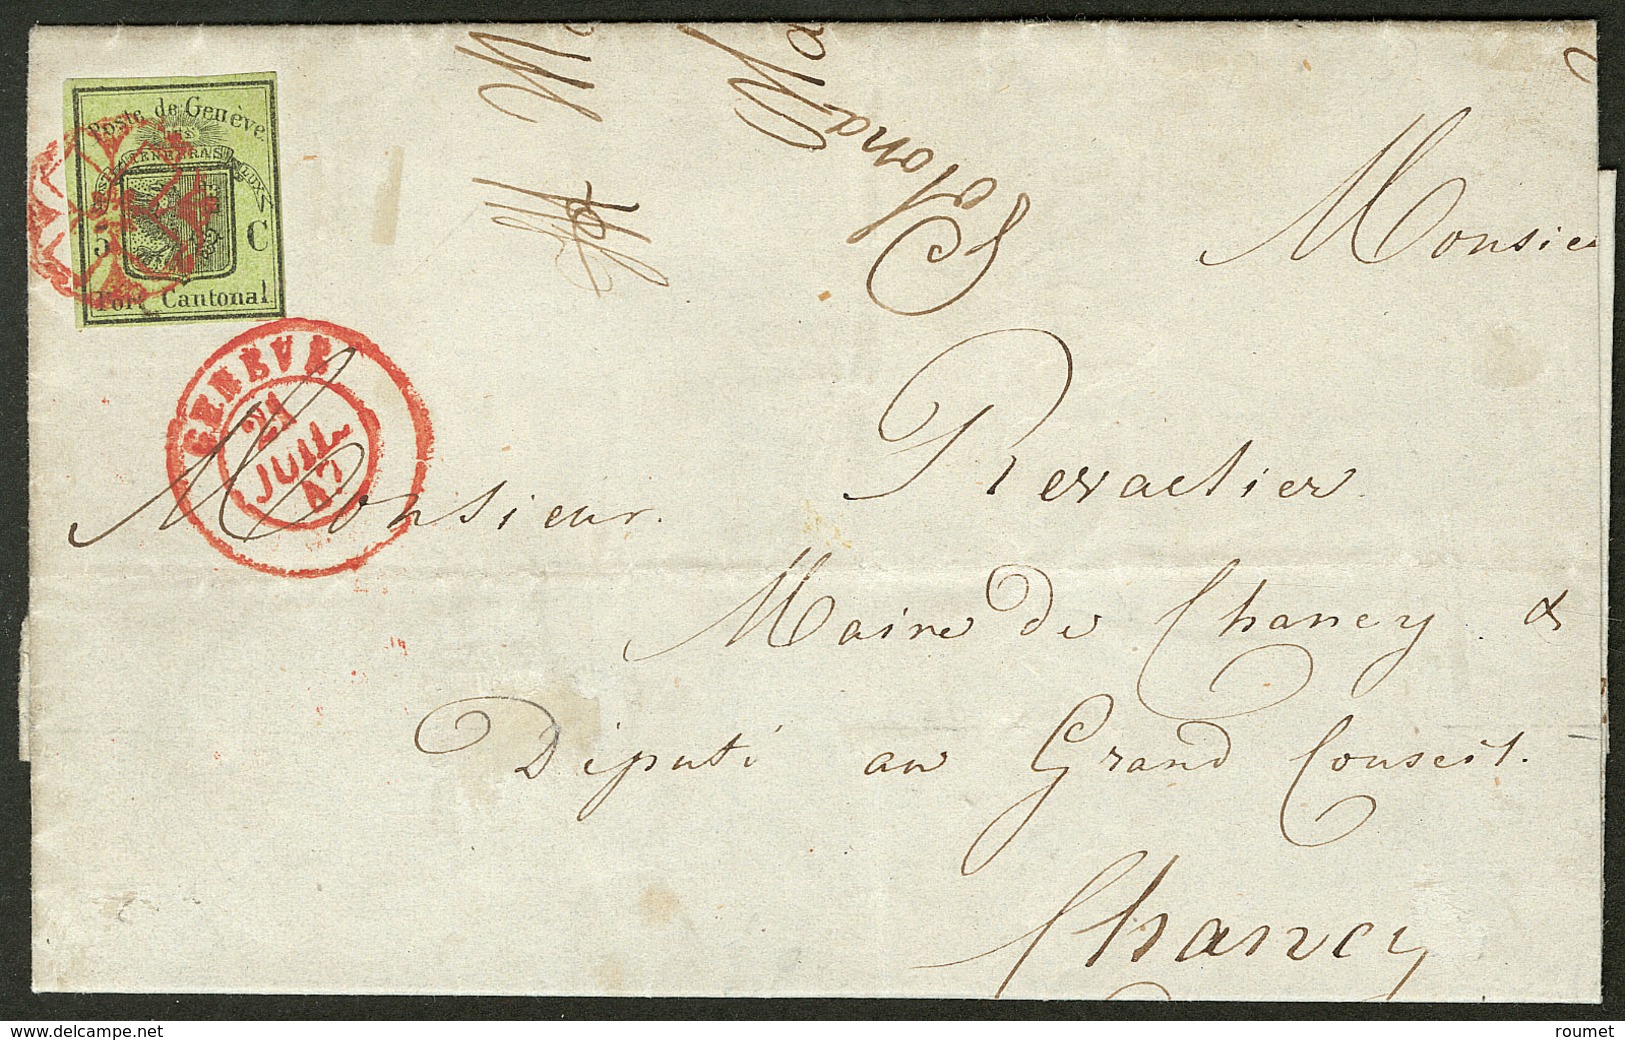 Poste de Genève.
POST TENEBRAS LUX
5 C
Port Cantonal.
GENÈVE
21
JUIL
47
Monsieur
Monsieur.
Revaclier
Maire de Chancy &
Député au Grand Conseil.
Chancy
www.delcampe.net
roumet